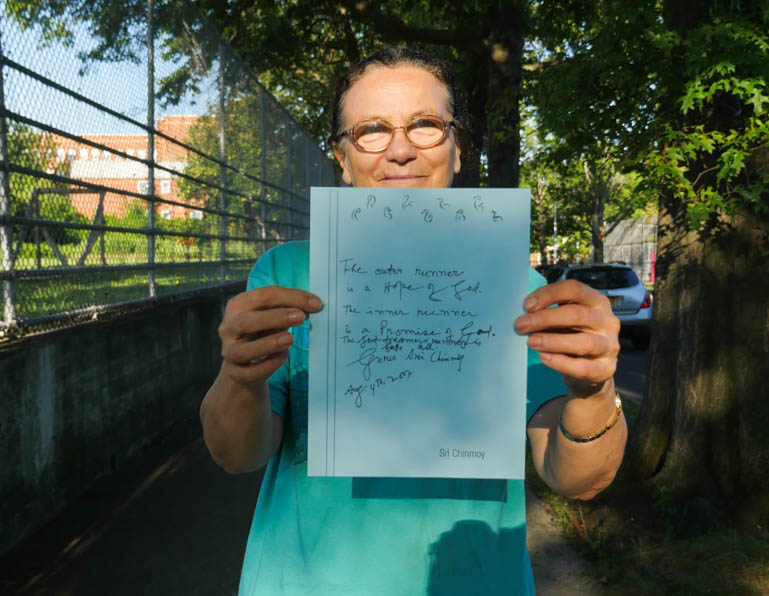 The outer runner
is a Hope of God.
The inner runner
is a Promise of God.
The God-dreamer-runner is
both
Sri Chinmoy
Aug. 4th, 2007
Sri Chinmoy